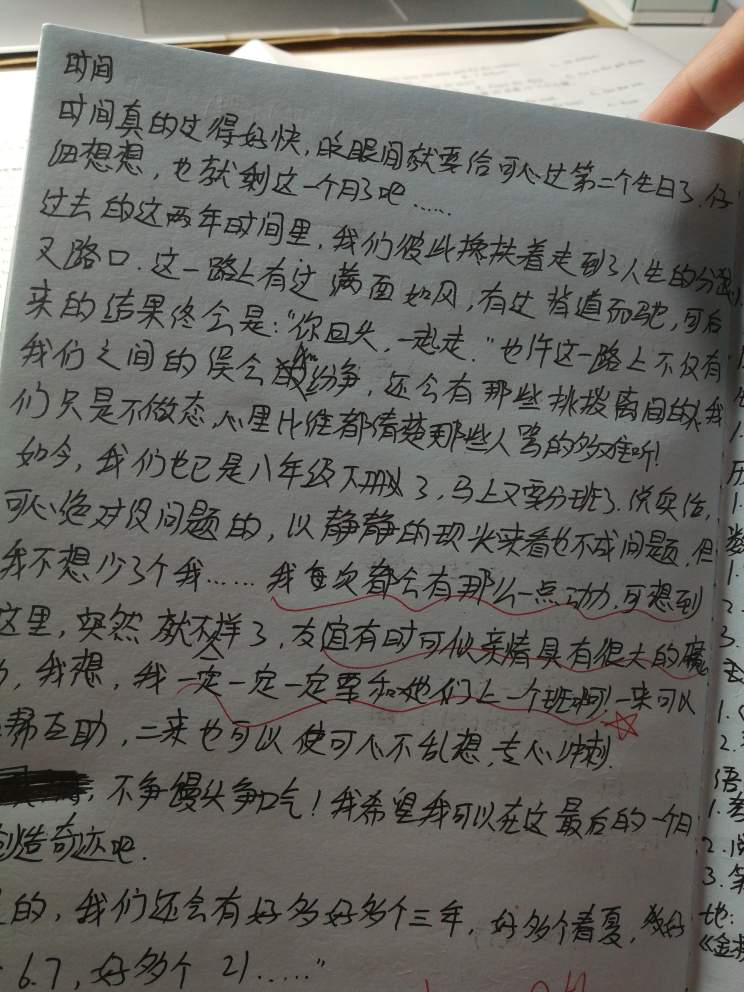 时间
时间真的过得好快，眨眼间就要给可心过第二个生日了，仔
细想想，也就剩这一个月了吧……
过去的这两年时间里，我们彼此搀扶着走到了人生的分
叉路口．这一路上有过满面如风，有过背道而驰，可后
来的结果终会是：“你回头，一起走．”也许这一路上不仅有
我们之间的误会 纷争，还会有那些挑拨离间的人，我
们只是不做态，心里比谁都清楚那些人骂的多难听！
如今，我们也已是八年级下册了，马上又要分班了．说实话，
可心绝对没问题的，以静静的现 来看也不成问题，但
我不想少了个我……我每次都会有那么一点动力，可想到
这里，突然就不一样了，友谊有时可似亲情具有很大的魔
力，我想，我一定一定一定要和她们上一个班啊！一来可以
帮互助，二来也可以使可心不乱想，专心冲刺．
，不争馒头争口气！我希望我可以在这最后的一个月
创造奇迹吧．
的，我们还会有好多好多个三年，好多个春夏，好
6.7，好多个 21……”
1.
2.
3.
1.
2.
语
1.
2.
3.
地：